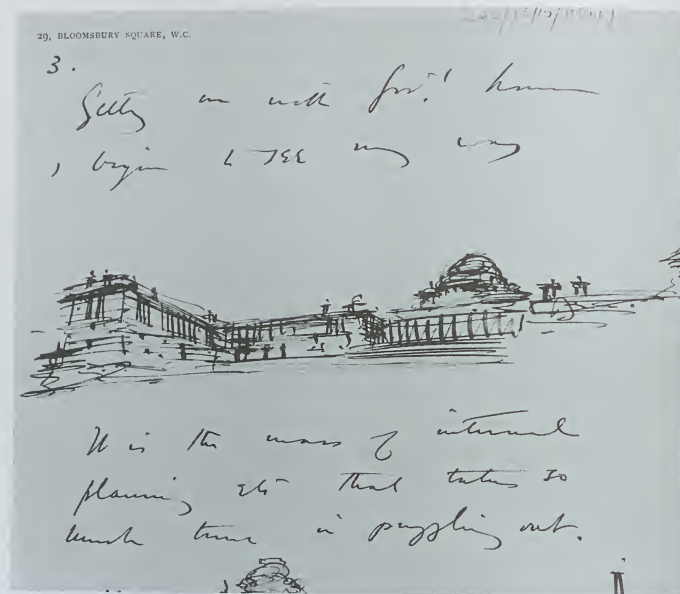 29, BLOOMSBURY SQUARE, W.C.
3.
Getting on with Gov.t house
I begin to SEE my way
It is the mass of internal
planning etc that takes so
much time in puzzling out.